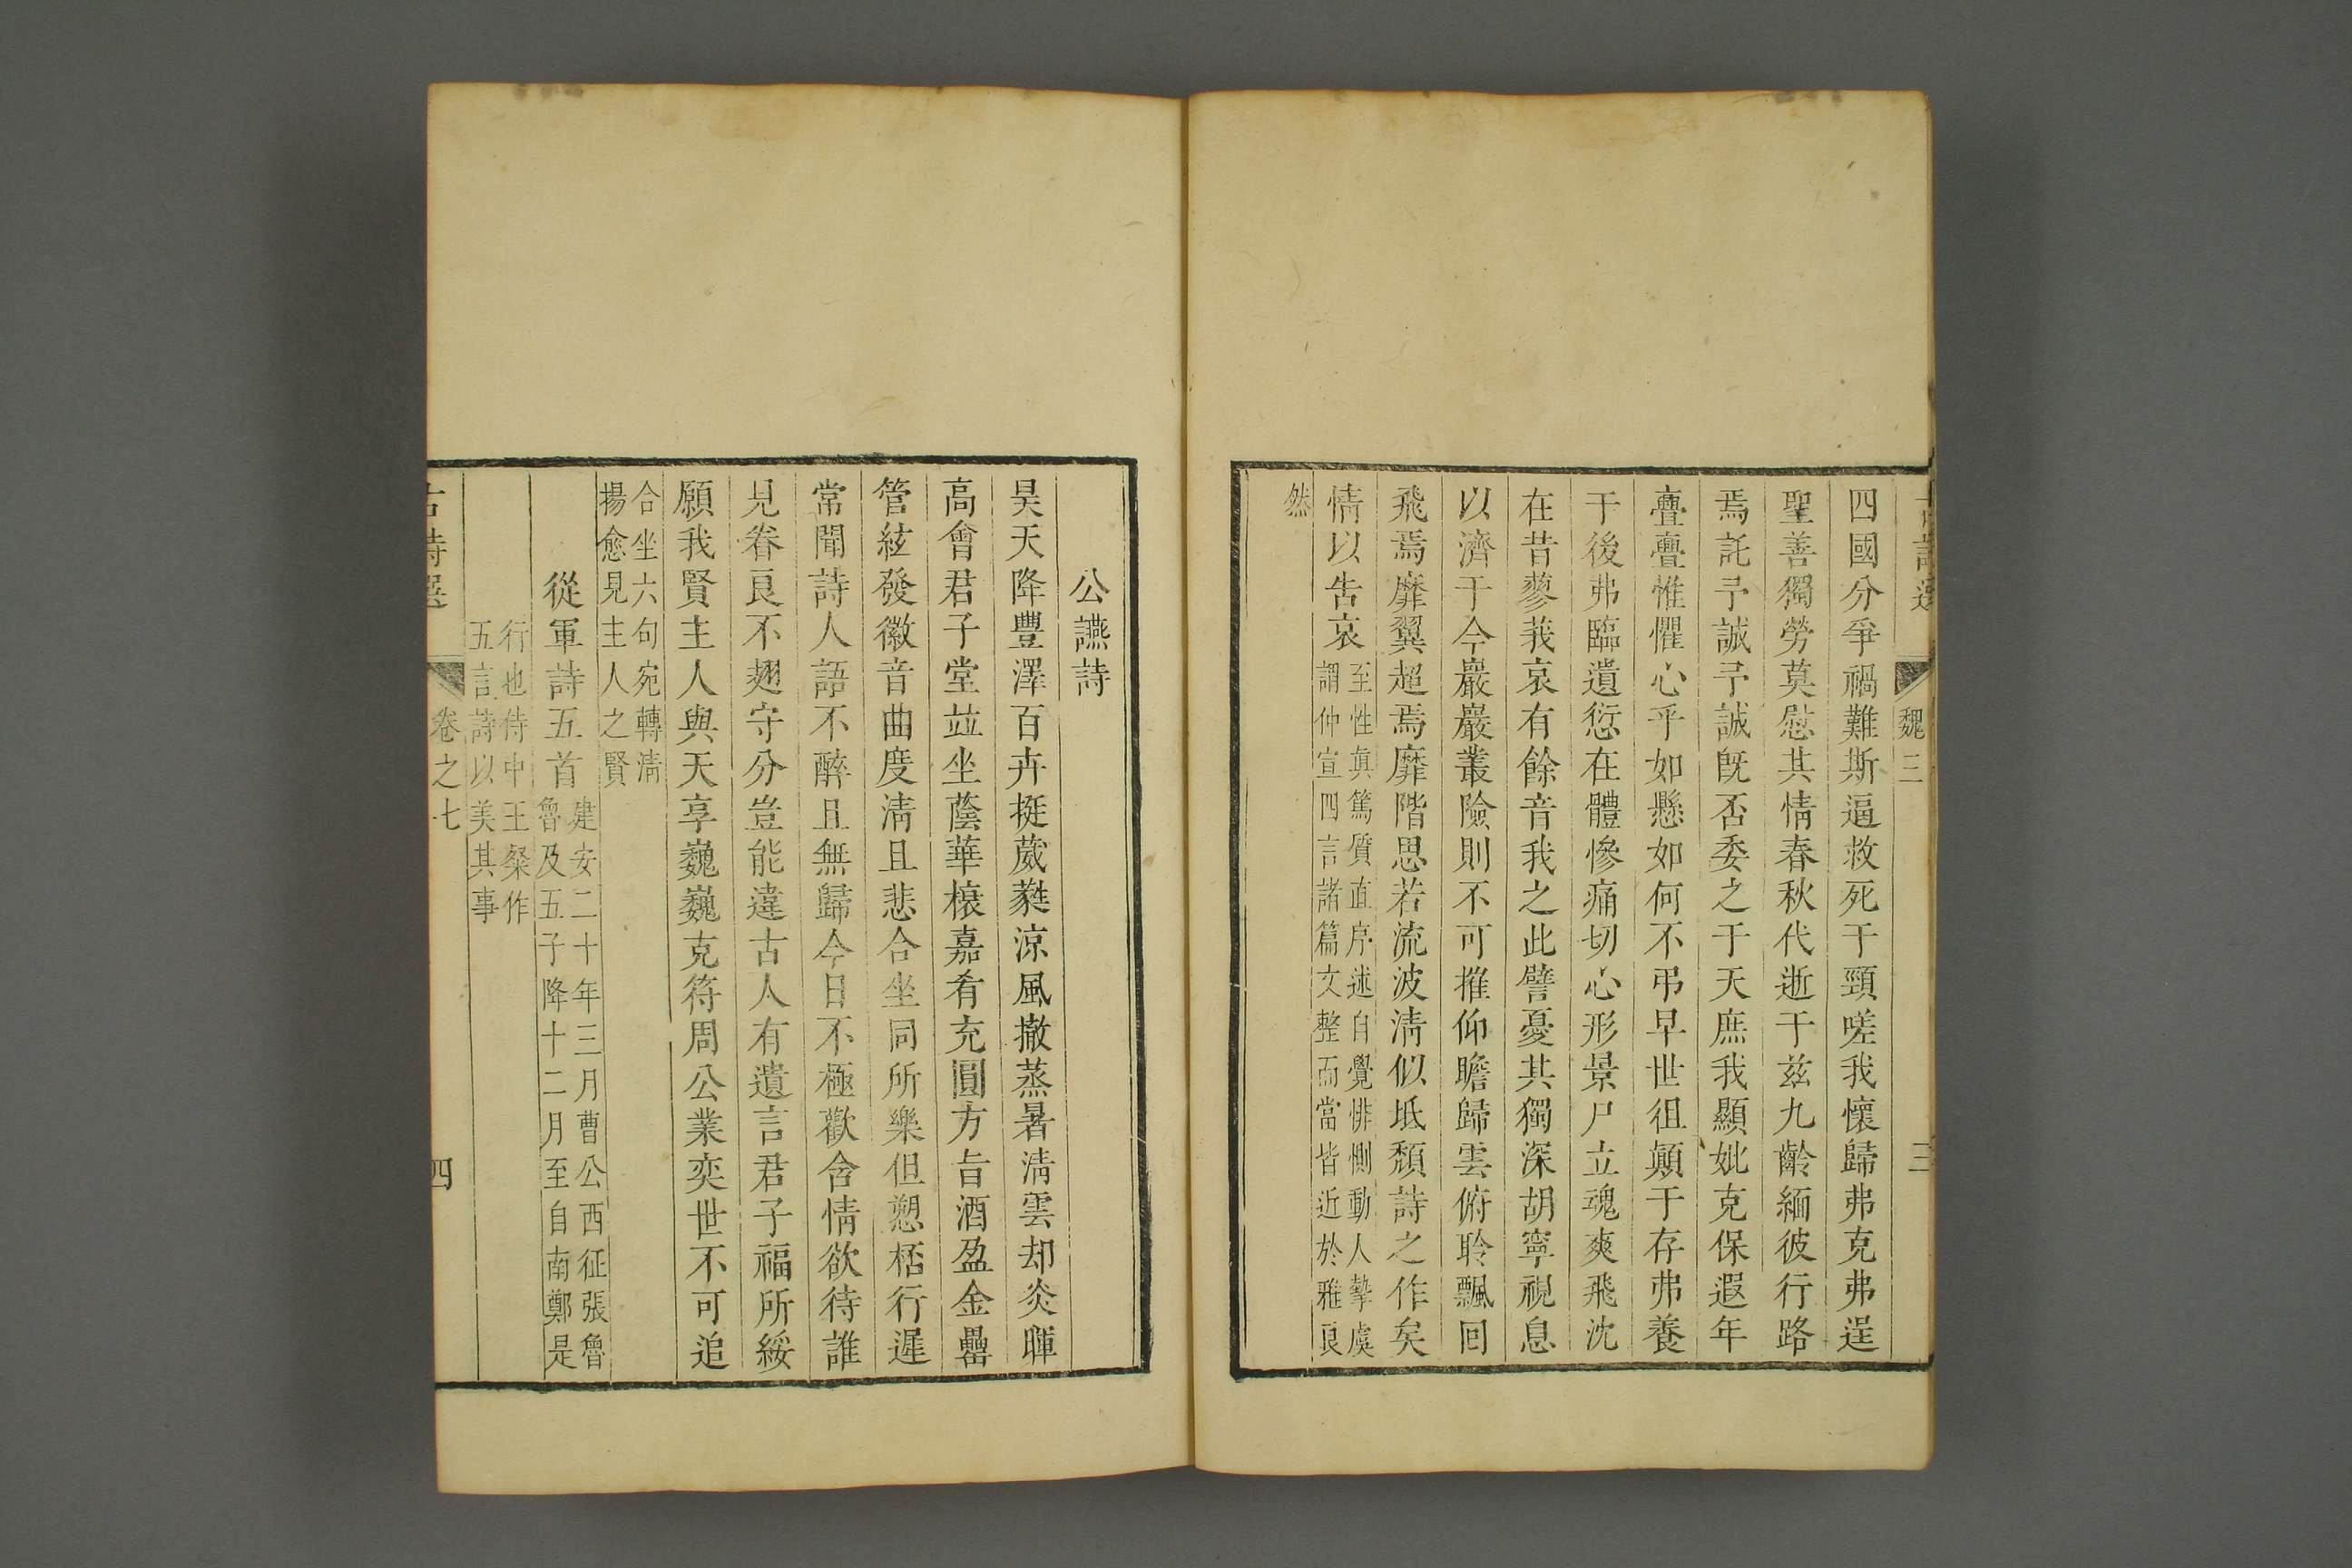 魏三
三
四國分爭禍難斯逼救死于頸嗟我懷歸弗克弗逞
聖善獨勞莫慰其情春秋代逝于兹九齡緬彼行路
焉託予誠予誠旣否委之于天庶我顯妣克保遐年
亹亹惟懼心乎如懸如何不弔早世徂顛于存弗養
于後弗臨遺愆在體慘痛切心形景尸立魂爽飛沈
在昔蓼莪哀有餘音我之此譬憂其獨深胡寧視息
以濟于今巖巖叢險則不可摧仰瞻歸雲俯聆飄回
飛焉靡翼超焉靡階思若流波淸似坻頽詩之作矣
情以告哀
至性眞篤質直序述自覺悱惻動人摯虞
謂仲宣四言諸篇文整而當皆近於雅良
然
公讌詩
昊天降豐澤百卉挺葳蕤涼風撤蒸暑淸雲却炎暉
高會君子堂竝坐蔭華榱嘉肴充圓方旨酒盈金罍
管絃發徽音曲度淸且悲合坐同所樂但愬桮行遲
常聞詩人語不醉且無歸今日不極歡含情欲待誰
見眷良不翅守分豈能違古人有遺言君子福所綏
願我賢主人與天享巍巍克符周公業奕世不可追
合坐六句宛轉淸
揚愈見主人之賢
從軍詩五首
建安二十年三月曹公西征張魯
魯及五子降十二月至自南鄭是
行也侍中王粲作
五言詩以美其事
古詩選
卷之七
四